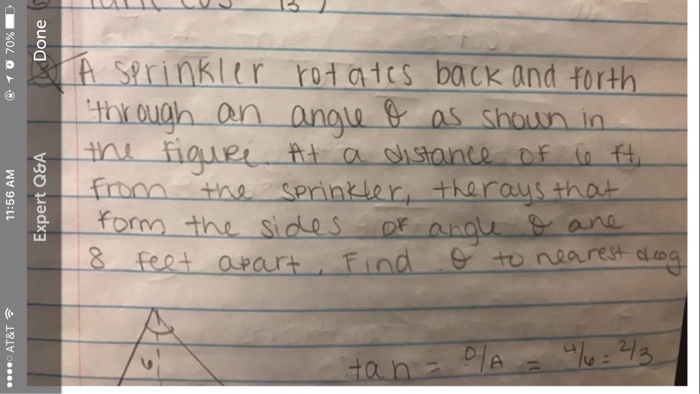 A sprinkler rotates back and forth
through an angle θ as shown in
the figure. At a distance of 6 ft,
from the sprinkler, the rays that
form the sides of angle θ are
8 feet apart. Find θ to nearest deg
6
tan = O/A = 4/6 = 2/3
Done
Expert Q&A
70%
11:56 AM
AT&T